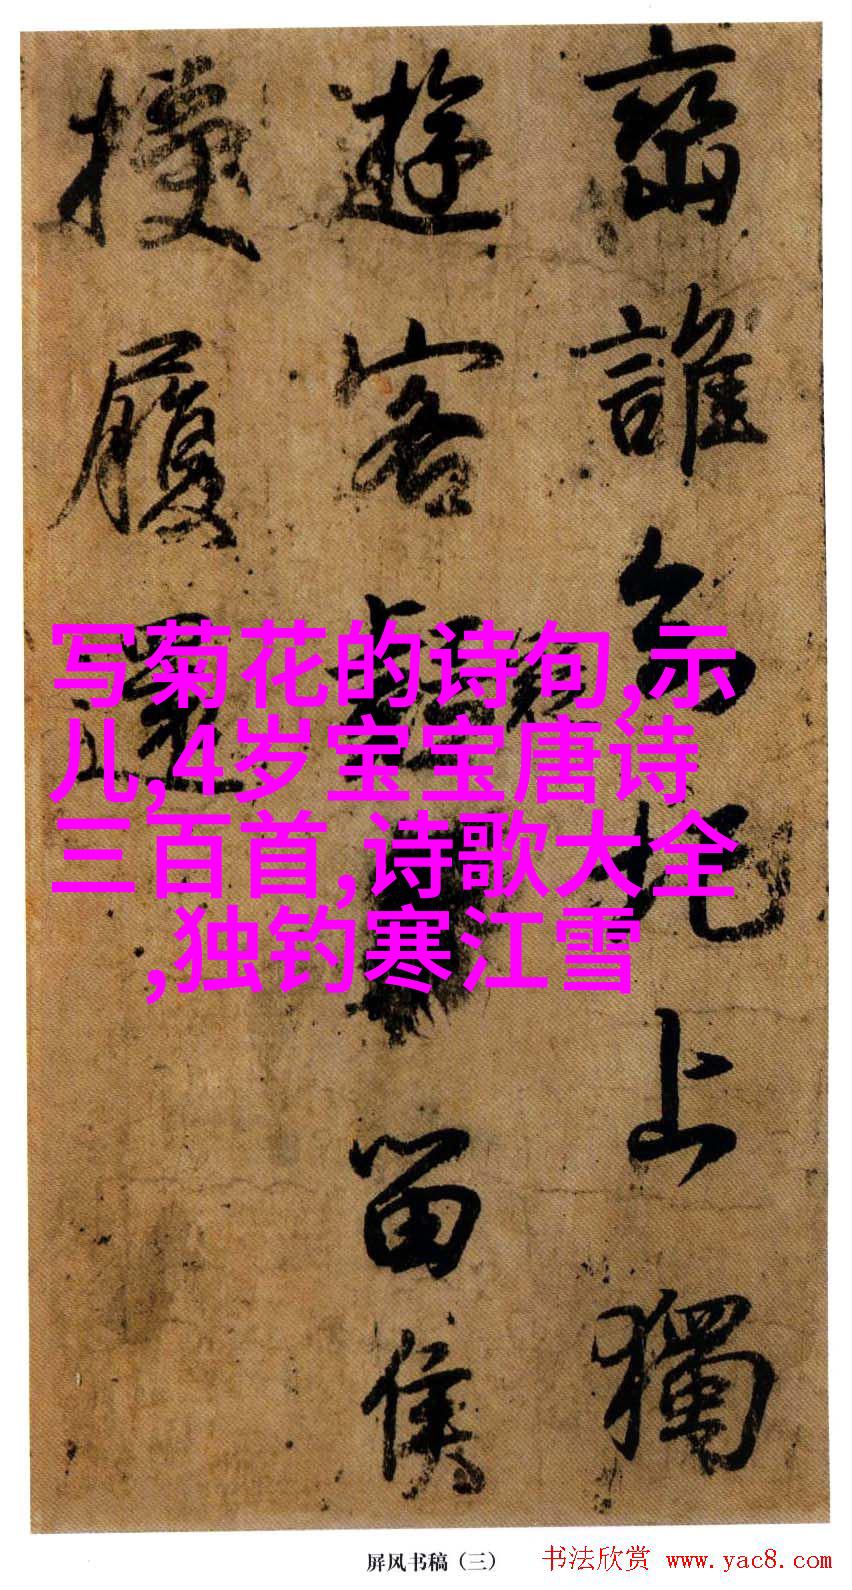 峦誰
上獨
遊客
留侯
履還
写菊花的诗句,示
儿,4岁宝宝唐诗
三百首,诗歌大全
,独钓寒江雪
屏风书稿（三）
书法欣赏 www.yac8.com